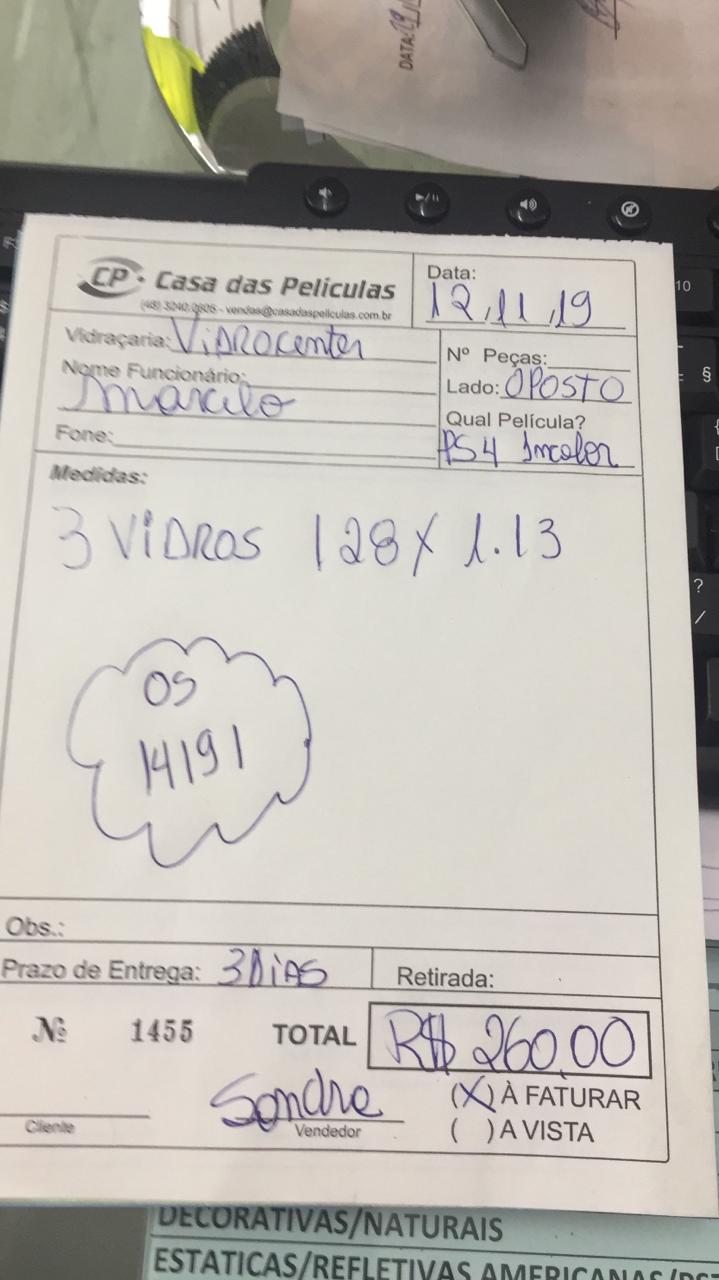 DATA: 19
CP Casa das Películas
(48) 3240.0605 - vendas@casadaspeliculas.com.br
Data:
12,11,19
Vidraçaria: VIDROCENTER
Nome Funcionário:
Marcilo
Fone:
Nº Peças:
Lado: OPOSTO
Qual Película?
PS4 Incolor
Medidas:
3 VIDROS 128 X 1.13
OS
14191
Obs.:
Prazo de Entrega: 3 DIAS
Retirada:
Nº 1455
TOTAL R$ 260,00
Sondre
Cliente
Vendedor
(X) À FATURAR
( ) A VISTA
DECORATIVAS/NATURAIS
ESTATICAS/REFLETIVAS AMERICANAS/
10
§
?
/